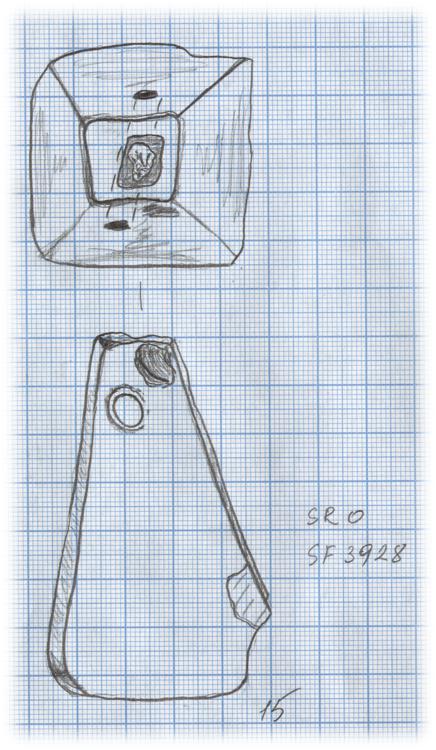 SR 0
SF 3928
15